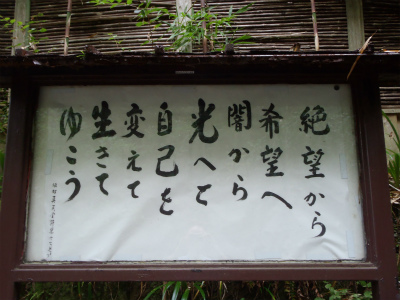 絶望から
希望へ
闇から
光へと
自己を
変えて
生きて
ゆこう